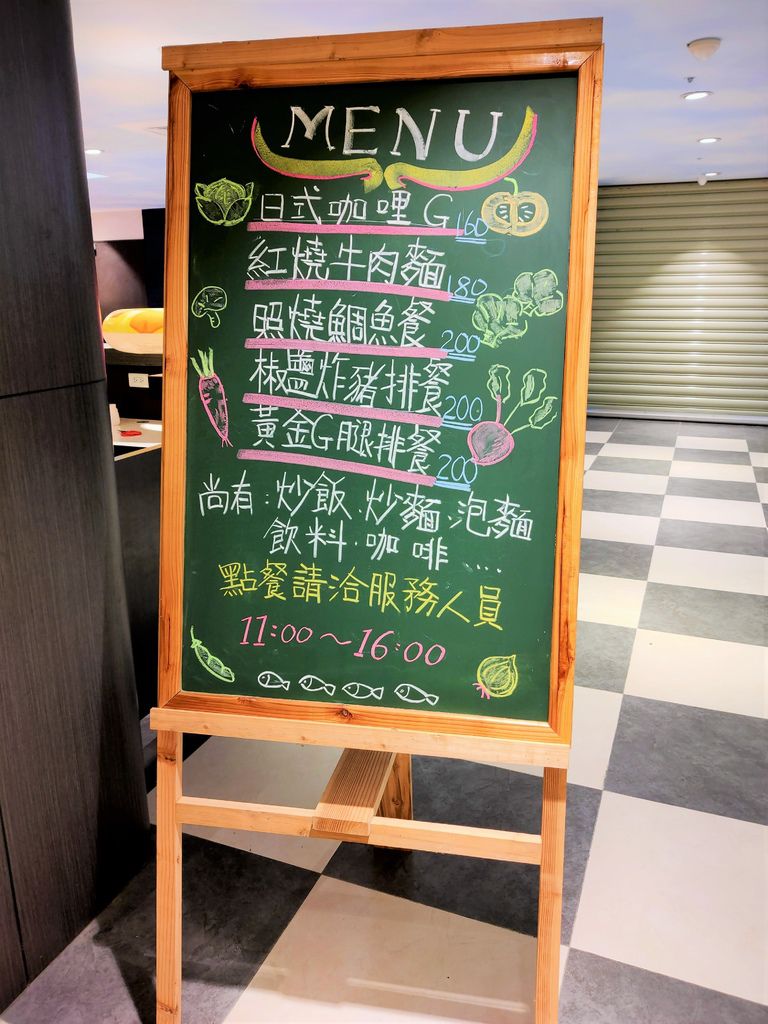 MENU
日式咖哩G 160
紅燒牛肉麵 180
照燒鯛魚餐 200
椒鹽炸豬排餐 200
黃金G腿排餐 200
尚有:炒飯.炒麵.泡麵
飲料.咖啡....
點餐請洽服務人員
11:00~16:00